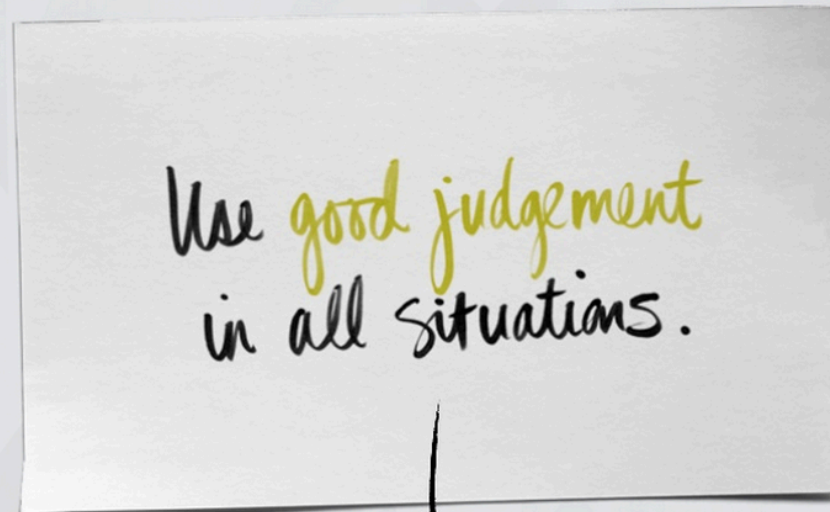 Use good judgement
in all situations.